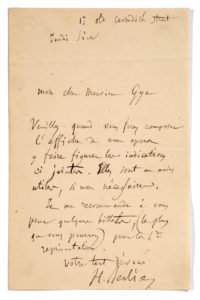 17 old cavendish street
Jeudi soir
mon cher Monsieur Gye
Veuillez quand vous ferez composer
l'affiche de mon opéra
y faire figurer les indications
ci jointes. Elles sont au moins
utiles, si non nécessaires.
Je me recommande à vous
pour quelques billets, (le plus
que vous pourrez) pour la 1re
représentation.
Votre tout dévoué
H. Berlioz